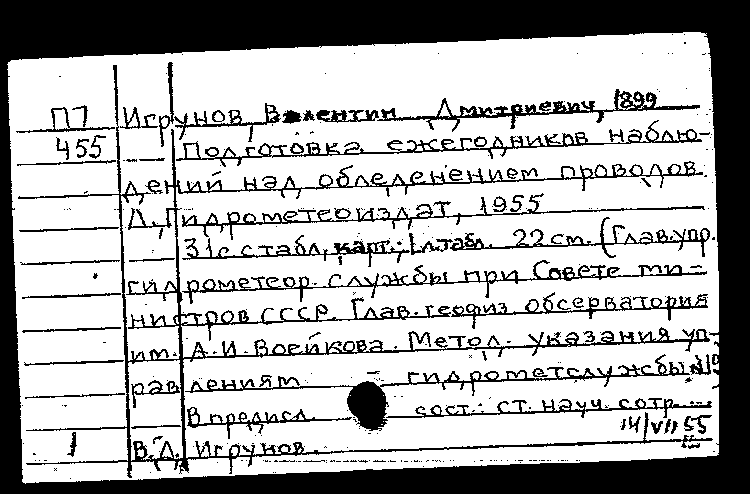 П7 Игрунов, Валентин Дмитриевич, 1899
455 Подготовка ежегодников наблю-
дений над обледенением проводов
Л., Гидрометеоиздат, 1955
31с с табл, карт.; 1 л.табл. 22 см. (Глав.упр.
гидрометеор. службы при Совете ми-
нистров СССР. Глав. геофиз. обсерватория
им. А.И. Воейкова. Метод. указания уп-
равлениям - гидрометслужбы №19
В предисл. сост.: ст. науч. сотр. ...
14/VII 55
1 В.Д. Игрунов.